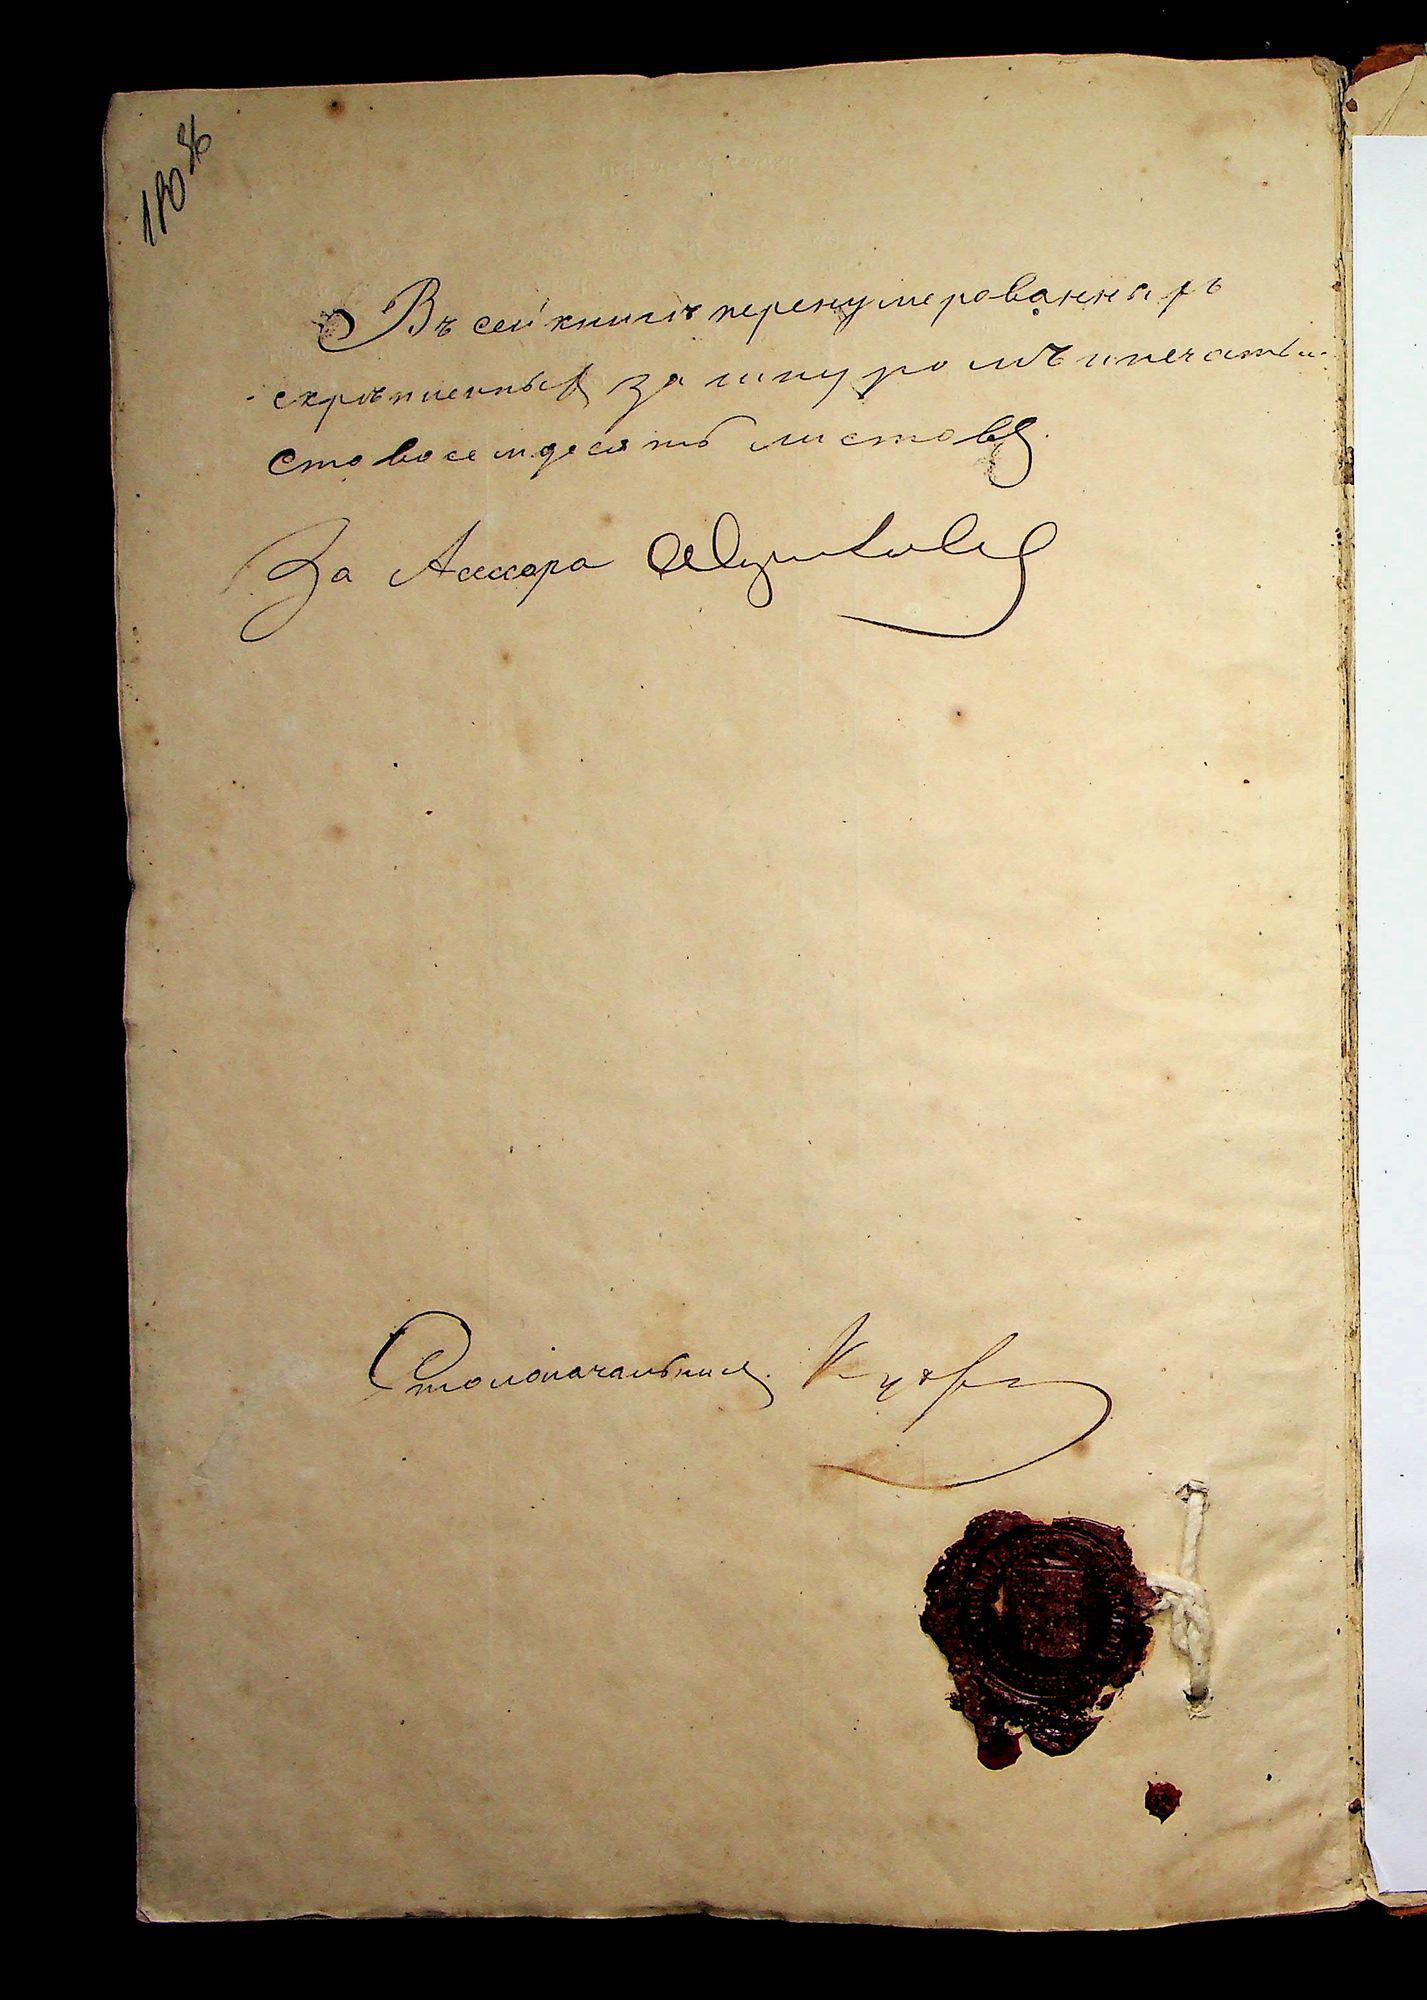 180 об
Въ сей книгѣ перенумерованныхъ
скрѣпленныхъ за шнуромъ и печатью
сто восемдесятъ листовъ.
За Ассесора
Столоначальникъ